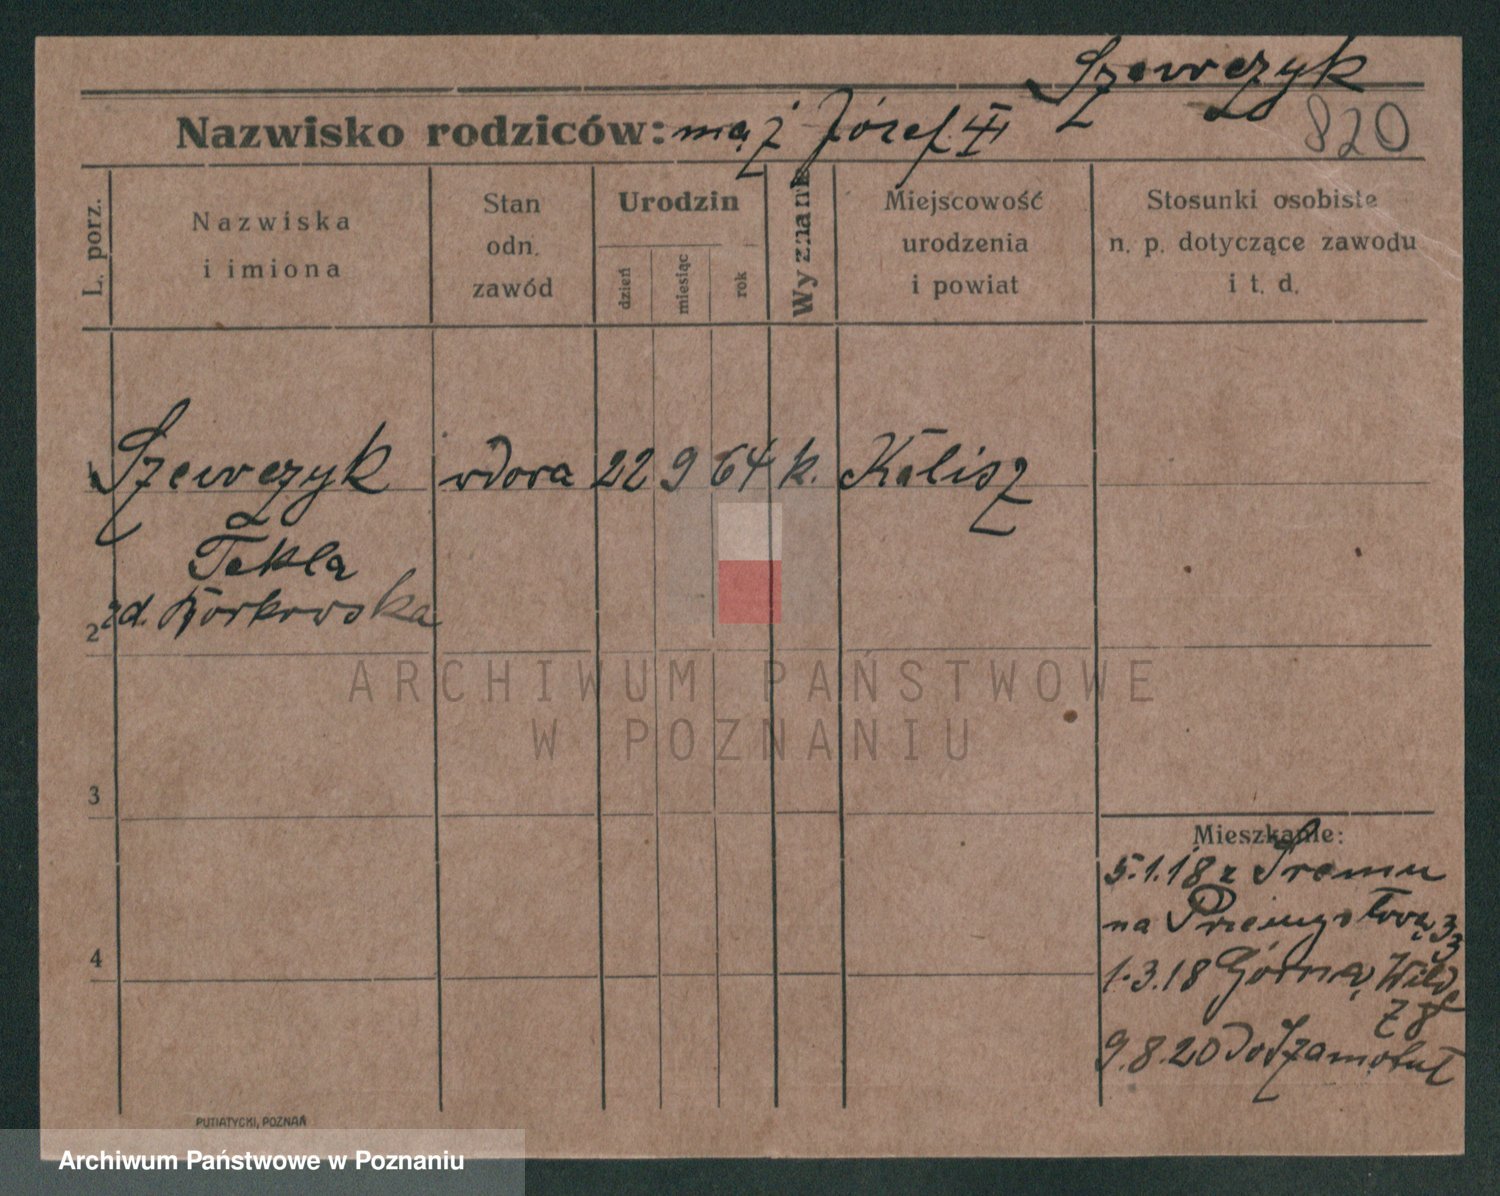 Szewczyk
Nazwisko rodziców: mąż Józef III
820
L. porz.
Nazwiska
i imiona
Stan
odn.
zawód
Urodzin
dzień
miesiąc
rok
Wyznanie
Miejscowość
urodzenia
i powiat
Stosunki osobiste
n. p. dotyczące zawodu
i t. d.
1 Szewczyk wdowa 22 9 64 k. Kalisz
Tekla
2 zd. Borkowska
ARCHIWUM PAŃSTWOWE
W POZNANIU
3
Mieszkanie:
5.1.18 z Śremu
na Przemysłową 33
4
1.3.18 Górna Wilda
78
9.8.20 do Szamotuł
PUTIATYCKI, POZNAŃ
Archiwum Państwowe w Poznaniu